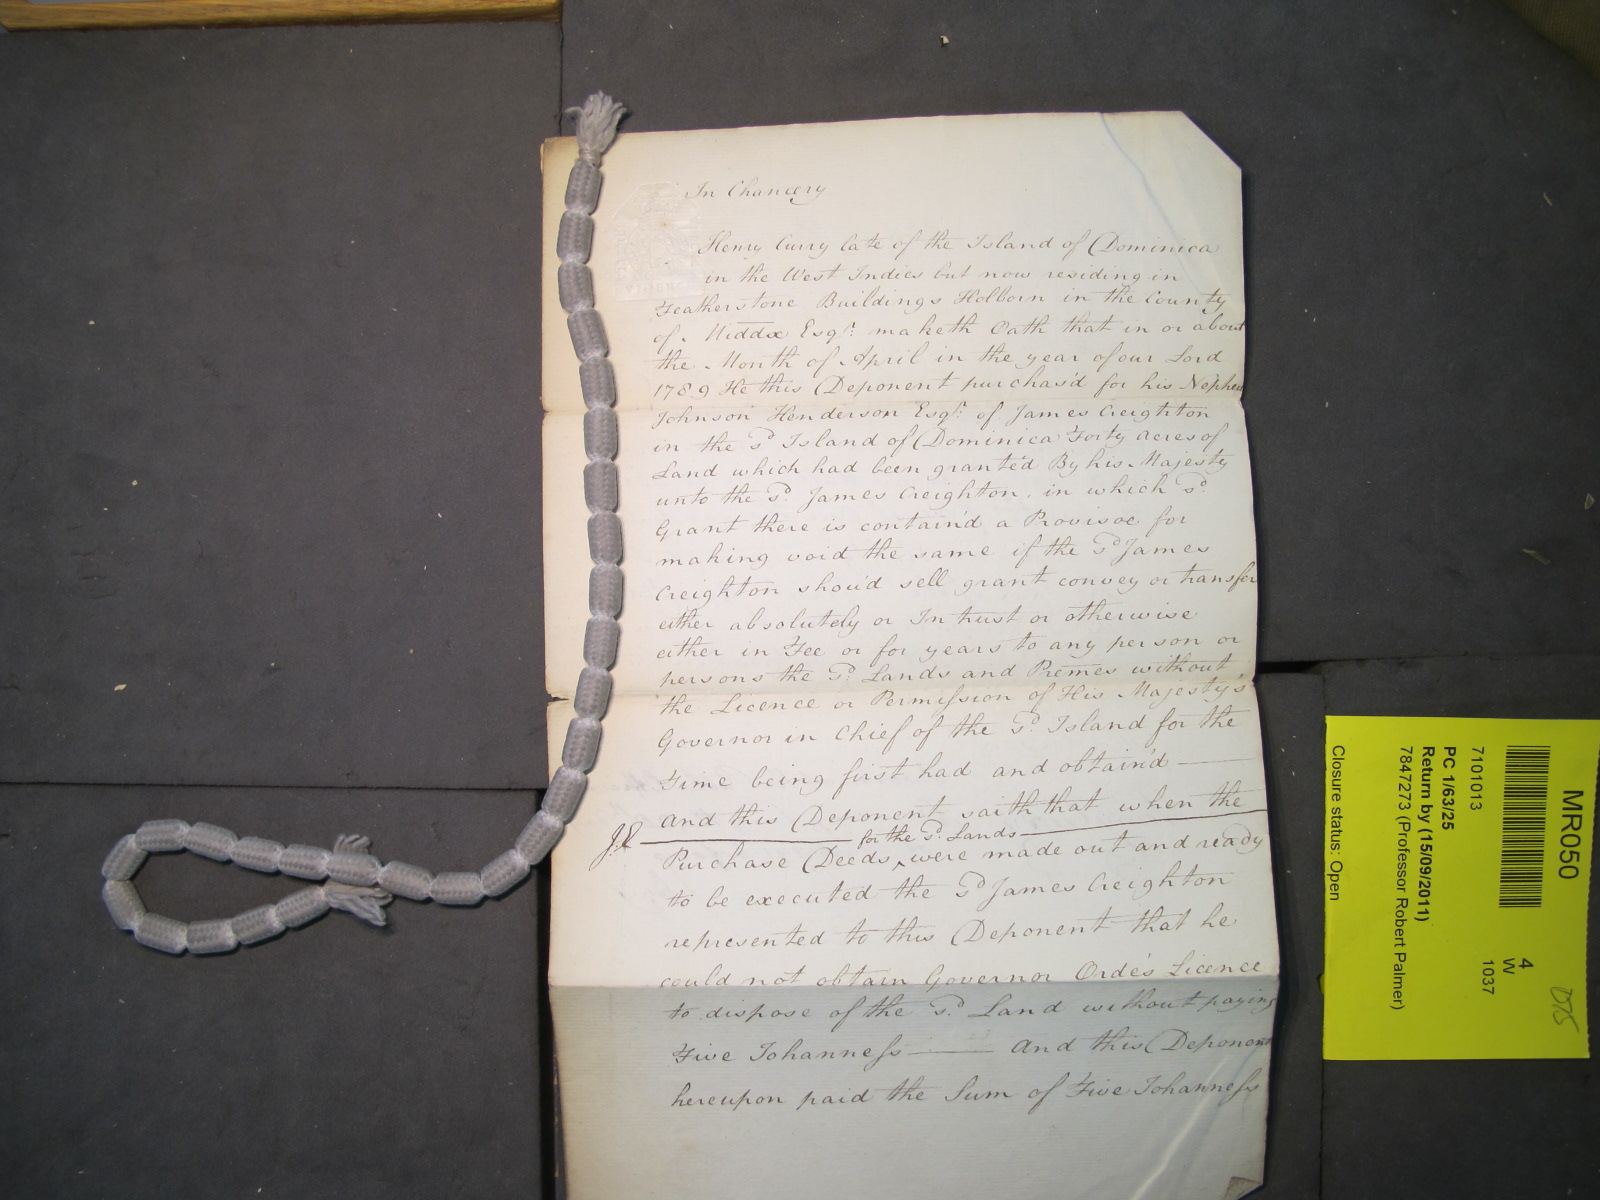 In Chancery
Henry Curry late of the Island of Dominica
in the West Indies but now residing in
Featherstone Buildings Holborn in the County
of Middx Esqr. maketh Oath that in or about
the Month of April in the year of our Lord
1789 He this Deponent purchas'd for his Nephew
Johnson Henderson Esqr. of James Creighton
in the sd. Island of Dominica Forty Acres of
Land which had been granted By his Majesty
unto the sd. James Creighton. in which sd.
Grant there is contain'd a Provisoe for
making void the same if the sd. James
Creighton shou'd sell grant convey or transfer
either absolutely or In trust or otherwise
either in Fee or for years to any person or
persons the sd. Lands and Premes without
the Licence or Permission of His Majesty's
Governor in Chief of the sd. Island for the
Time being first had and obtain'd
and this Deponent saith that when the
for the sd. Lands
Purchase Deeds ‸ were made out and ready
to be executed the sd. James Creighton
represented to this Deponent that he
could not obtain Governor Orde's Licence
to dispose of the sd. Land without paying
Five Johanness — And this Deponent
hereupon paid the Sum of Five Johanness
MR050
4
W
1037
075
7101013
PC 1/63/25
Return by (15/09/2011)
7847273 (Professor Robert Palmer)
Closure status: Open